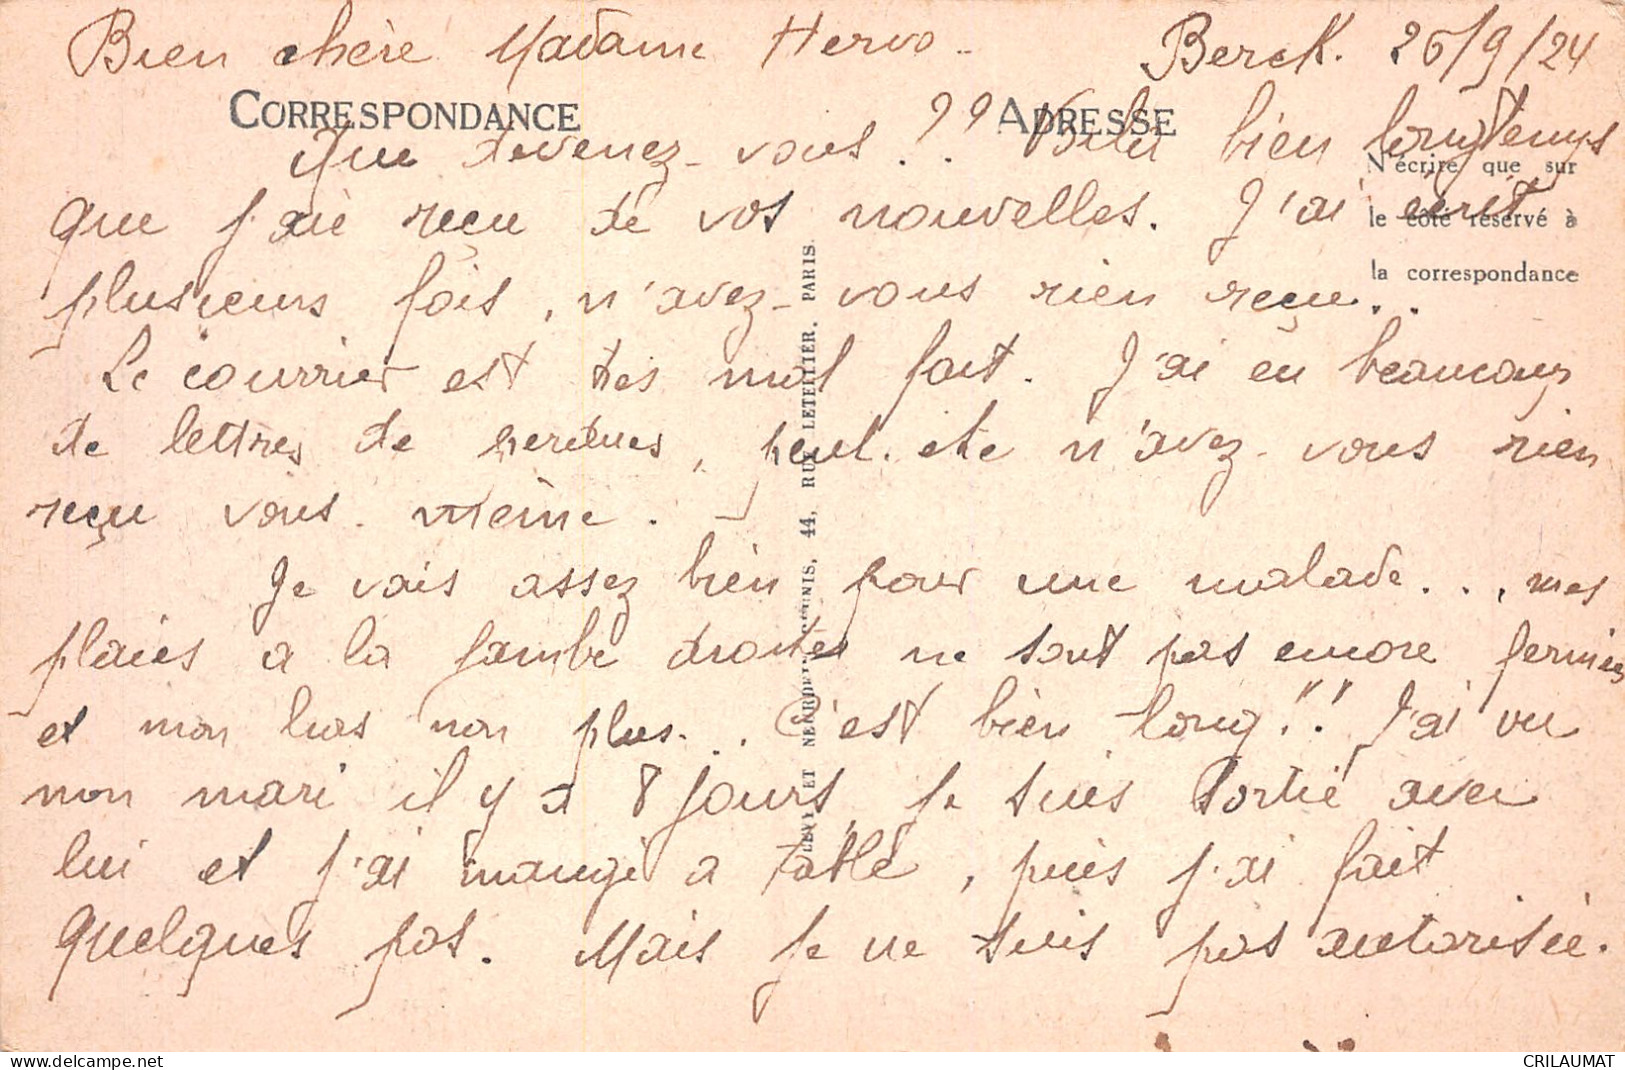 Bien chère Madame Hervo - Berck. 26/9/24
CORRESPONDANCE
ADRESSE
Que devenez-vous ?? Voilà bien longtemps
N'écrire que sur
que j'ai reçu de vos nouvelles. J'ai écrit
le côté réservé à
la correspondance
plusieurs fois, n'avez-vous rien reçu..
Le courrier est très mal fait. J'ai eu beaucoup
de lettres de perdues, peut-être n'avez-vous rien
reçu vous-même.
Je vais assez bien pour une malade... mes
plaies a la jambe droite ne sont pas encore fermées
et mon bras non plus... C'est bien long!! J'ai vu
mon mari il y a 8 jours, je suis sortie avec
lui et j'ai mangé a table, puis j'ai fait
quelques pas. Mais je ne suis pas autorisée.
LEVY ET NEURDEIN RÉUNIS, 44, RUE LETELLIER, PARIS
CRILAUMAT
delcampe.net